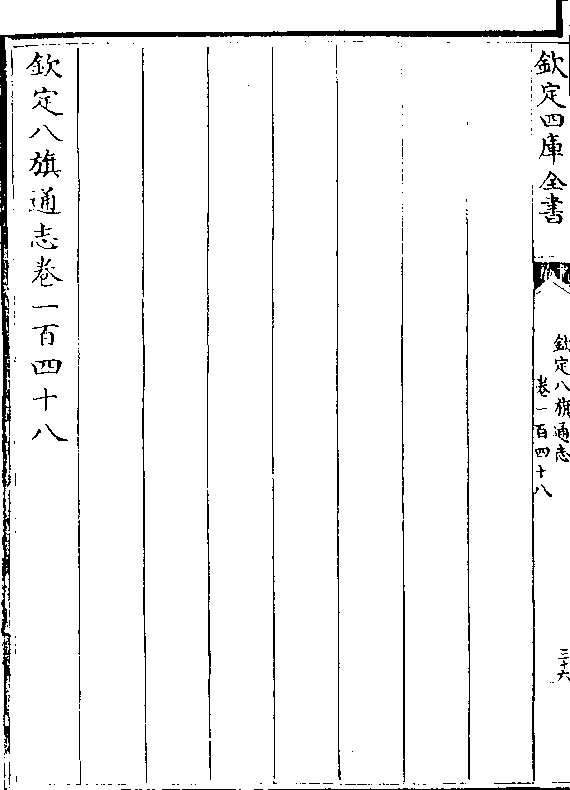 欽定四庫全書
欽定八旗通志
卷一百四十八
三十六
欽定八旗通志卷一百四十八